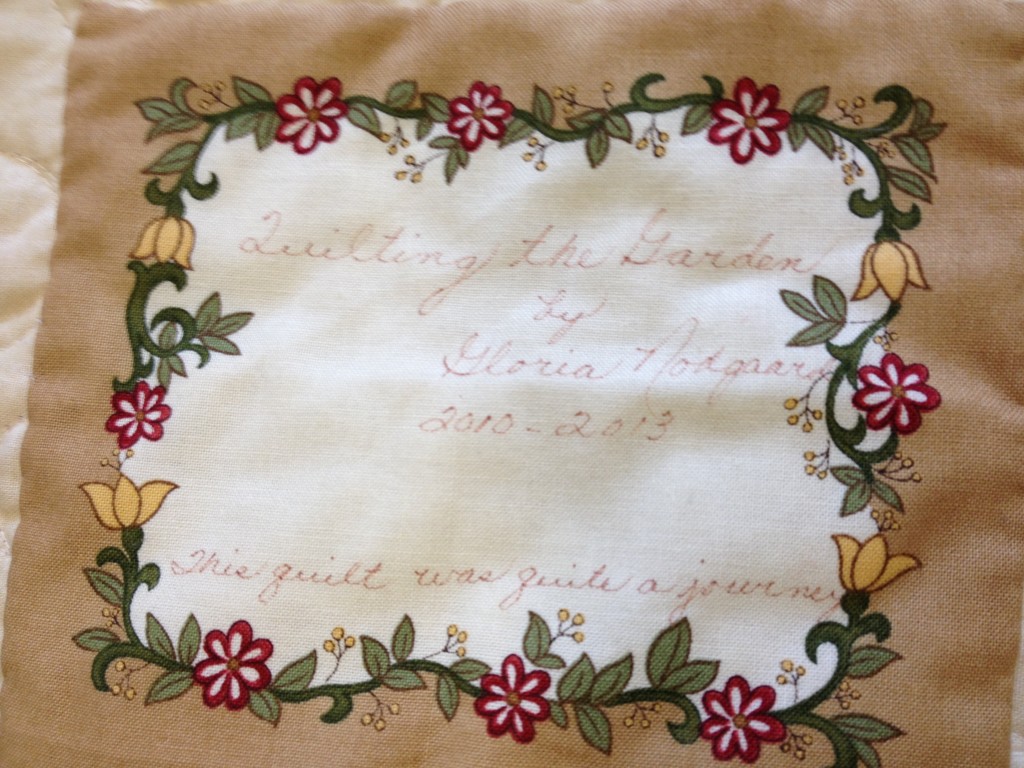 Quilting the Garden
by
Gloria Nodgaard
2010-2013
This quilt was quite a journey